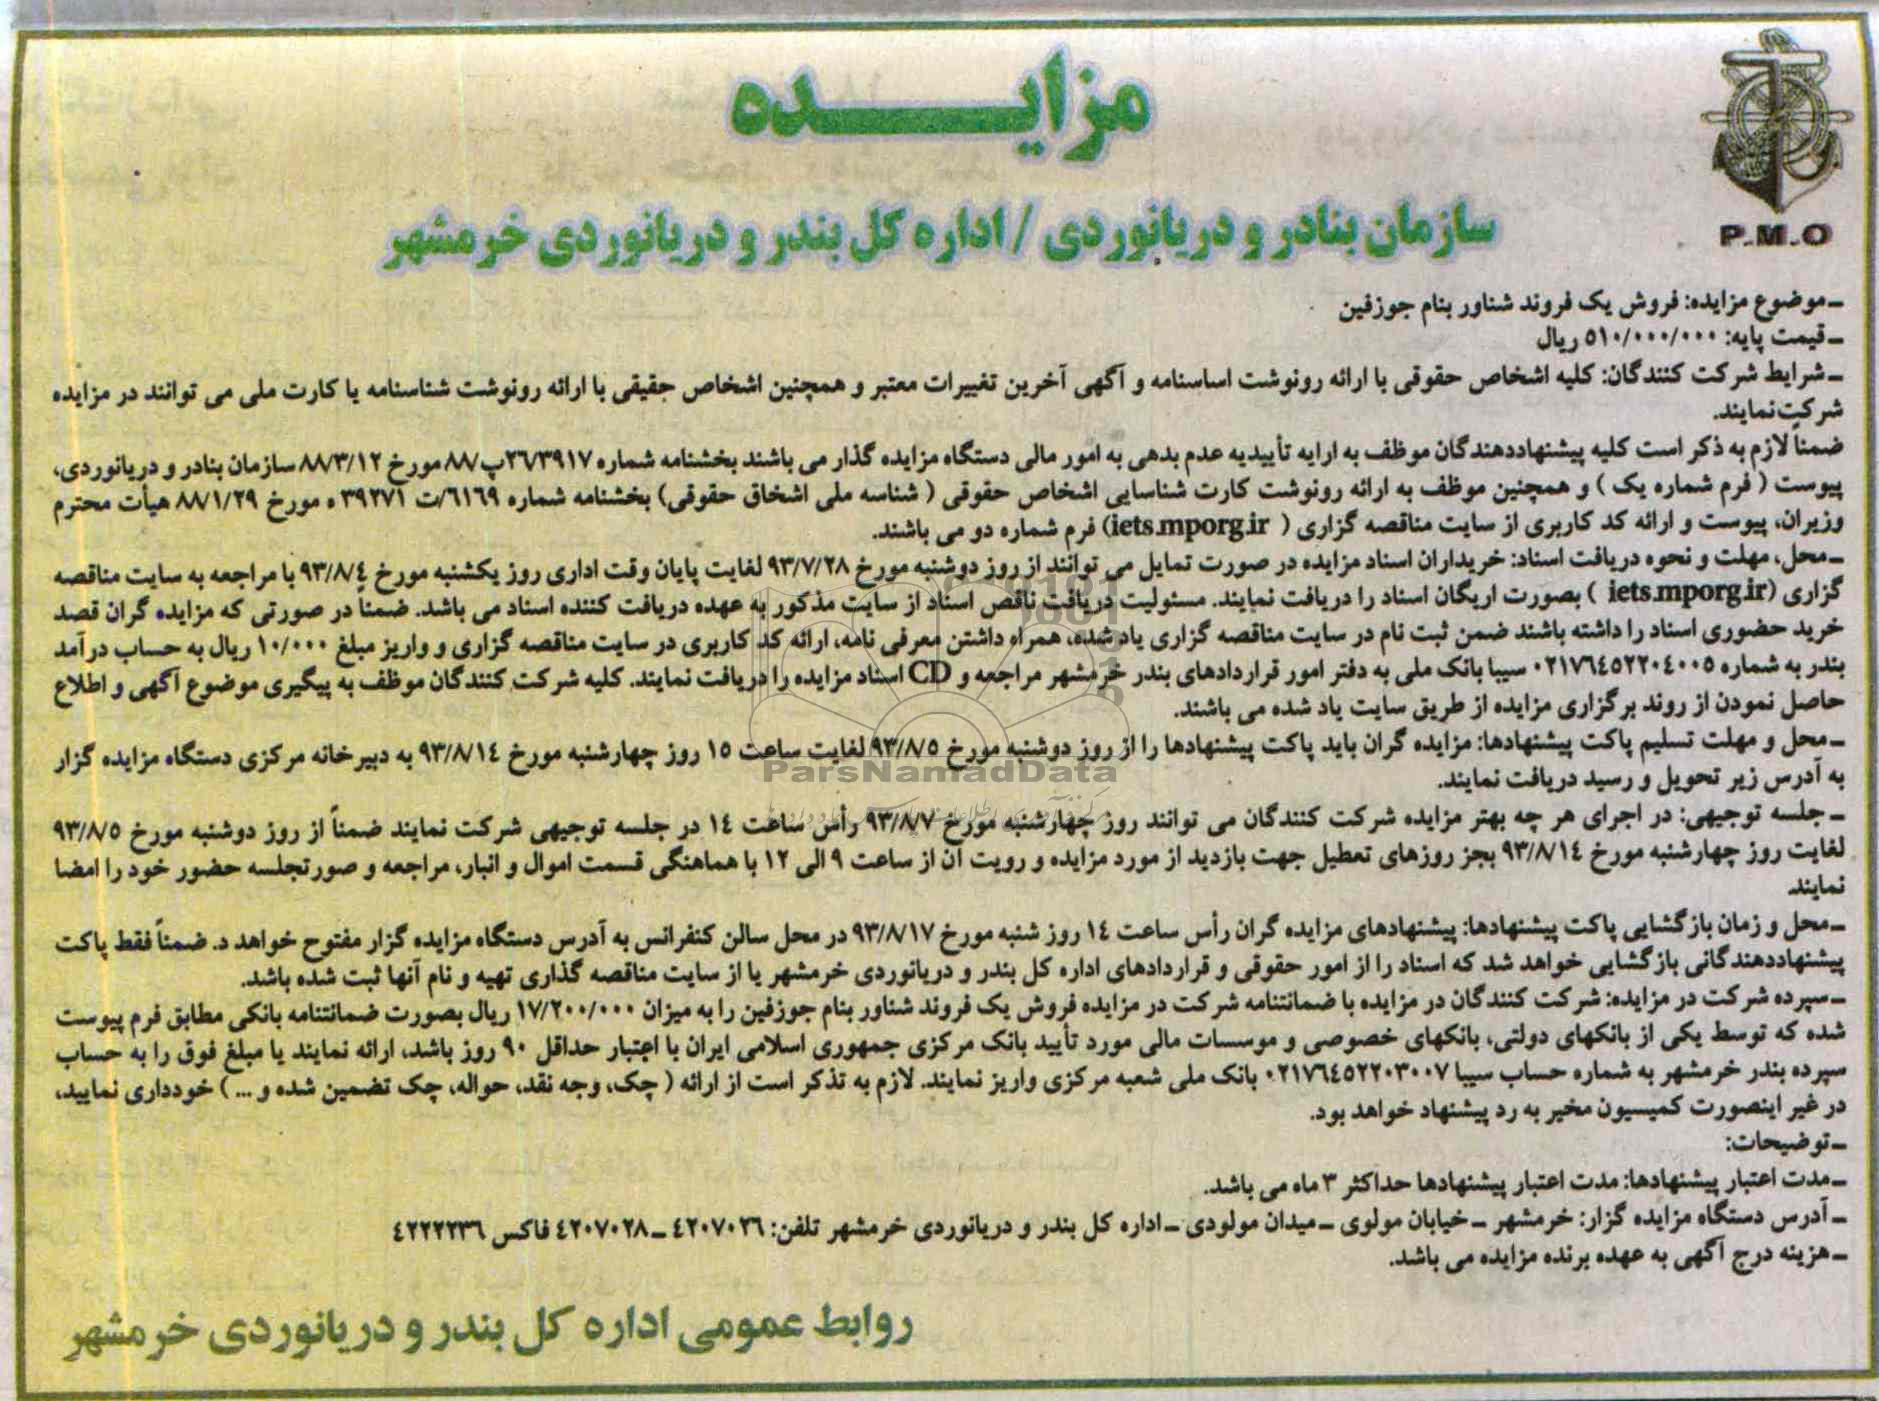 مزایـــــده
P.M.O
سازمان بنادر و دریانوردی / اداره کل بندر و دریانوردی خرمشهر
ـ موضوع مزایده: فروش یک فروند شناور بنام جوزفین
ـ قیمت پایه: ۵۱۰/۰۰۰/۰۰۰ ریال
ـ شرایط شرکت کنندگان: کلیه اشخاص حقوقی با ارائه رونوشت اساسنامه و آگهی آخرین تغییرات معتبر و همچنین اشخاص حقیقی با ارائه رونوشت شناسنامه یا کارت ملی می توانند در مزایده
شرکت نمایند.
ضمناً لازم به ذکر است کلیه پیشنهاددهندگان موظف به ارایه تأییدیه عدم بدهی به امور مالی دستگاه مزایده گذار می باشند بخشنامه شماره ۲۶/۳۹۱۷پ/۸۸ مورخ ۸۸/۳/۱۲ سازمان بنادر و دریانوردی،
پیوست ( فرم شماره یک ) و همچنین موظف به ارائه رونوشت کارت شناسایی اشخاص حقوقی ( شناسه ملی اشخاق حقوقی) بخشنامه شماره ۶۱۶۹/ت ۳۹۲۷۱ ه مورخ ۸۸/۱/۲۹ هیأت محترم
وزیران، پیوست و ارائه کد کاربری از سایت مناقصه گزاری ( iets.mporg.ir) فرم شماره دو می باشند.
ـ محل، مهلت و نحوه دریافت اسناد: خریداران اسناد مزایده در صورت تمایل می توانند از روز دوشنبه مورخ ۹۳/۷/۲۸ لغایت پایان وقت اداری روز یکشنبه مورخ ۹۳/۸/۴ با مراجعه به سایت مناقصه
گزاری (iets.mporg.ir ) بصورت اریگان اسناد را دریافت نمایند. مسئولیت دریافت ناقص اسناد از سایت مذکور به عهده دریافت کننده اسناد می باشد. ضمناً در صورتی که مزایده گران قصد
خرید حضوری اسناد را داشته باشند ضمن ثبت نام در سایت مناقصه گزاری یاد شده، همراه داشتن معرفی نامه، ارائه کد کاربری در سایت مناقصه گزاری و واریز مبلغ ۱۰/۰۰۰ ریال به حساب درآمد
بندر به شماره ۰۲۱۷۶۴۵۲۲۰۴۰۰۵ سیبا بانک ملی به دفتر امور قراردادهای بندر خرمشهر مراجعه و CD اسناد مزایده را دریافت نمایند. کلیه شرکت کنندگان موظف به پیگیری موضوع آگهی و اطلاع
حاصل نمودن از روند برگزاری مزایده از طریق سایت یاد شده می باشند.
ـ محل و مهلت تسلیم پاکت پیشنهادها: مزایده گران باید پاکت پیشنهادها را از روز دوشنبه مورخ ۹۳/۸/۵ لغایت ساعت ۱۵ روز چهارشنبه مورخ ۹۳/۸/۱۴ به دبیرخانه مرکزی دستگاه مزایده گزار
ParsNamadData
به آدرس زیر تحویل و رسید دریافت نمایند.
ـ جلسه توجیهی: در اجرای هر چه بهتر مزایده شرکت کنندگان می توانند روز چهارشنبه مورخ ۹۳/۸/۷ رأس ساعت ۱۴ در جلسه توجیهی شرکت نمایند ضمناً از روز دوشنبه مورخ ۹۳/۸/۵
لغایت روز چهارشنبه مورخ ۹۳/۸/۱۴ بجز روزهای تعطیل جهت بازدید از مورد مزایده و رویت آن از ساعت ۹ الی ۱۲ با هماهنگی قسمت اموال و انبار، مراجعه و صورتجلسه حضور خود را امضا
نمایند.
ـ محل و زمان بازگشایی پاکت پیشنهادها: پیشنهادهای مزایده گران رأس ساعت ۱۴ روز شنبه مورخ ۹۳/۸/۱۷ در محل سالن کنفرانس به آدرس دستگاه مزایده گزار مفتوح خواهد د. ضمناً فقط پاکت
پیشنهاددهندگانی بازگشایی خواهد شد که اسناد را از امور حقوقی و قراردادهای اداره کل بندر و دریانوردی خرمشهر یا از سایت مناقصه گذاری تهیه و نام آنها ثبت شده باشد.
ـ سپرده شرکت در مزایده: شرکت کنندگان در مزایده با ضمانتنامه شرکت در مزایده فروش یک فروند شناور بنام جوزفین را به میزان ۱۷/۲۰۰/۰۰۰ ریال بصورت ضمانتنامه بانکی مطابق فرم پیوست
شده که توسط یکی از بانکهای دولتی، بانکهای خصوصی و موسسات مالی مورد تأیید بانک مرکزی جمهوری اسلامی ایران با اعتبار حداقل ۹۰ روز باشد، ارائه نمایند یا مبلغ فوق را به حساب
سپرده بندر خرمشهر به شماره حساب سیبا ۰۲۱۷۶۴۵۲۲۰۳۰۰۷ بانک ملی شعبه مرکزی واریز نمایند. لازم به تذکر است از ارائه ( چک، وجه نقد، حواله، چک تضمین شده و ... ) خودداری نمایید،
در غیر اینصورت کمیسیون مخیر به رد پیشنهاد خواهد بود.
ـ توضیحات:
ـ مدت اعتبار پیشنهادها: مدت اعتبار پیشنهادها حداکثر ۳ ماه می باشد.
ـ آدرس دستگاه مزایده گزار: خرمشهر ـ خیابان مولوی ـ میدان مولودی ـ اداره کل بندر و دریانوردی خرمشهر تلفن: ۴۲۰۷۰۲۶ ـ ۴۲۰۷۰۲۸ فاکس ۴۲۲۲۲۳۶
ـ هزینه درج آگهی به عهده برنده مزایده می باشد.
روابط عمومی اداره کل بندر و دریانوردی خرمشهر